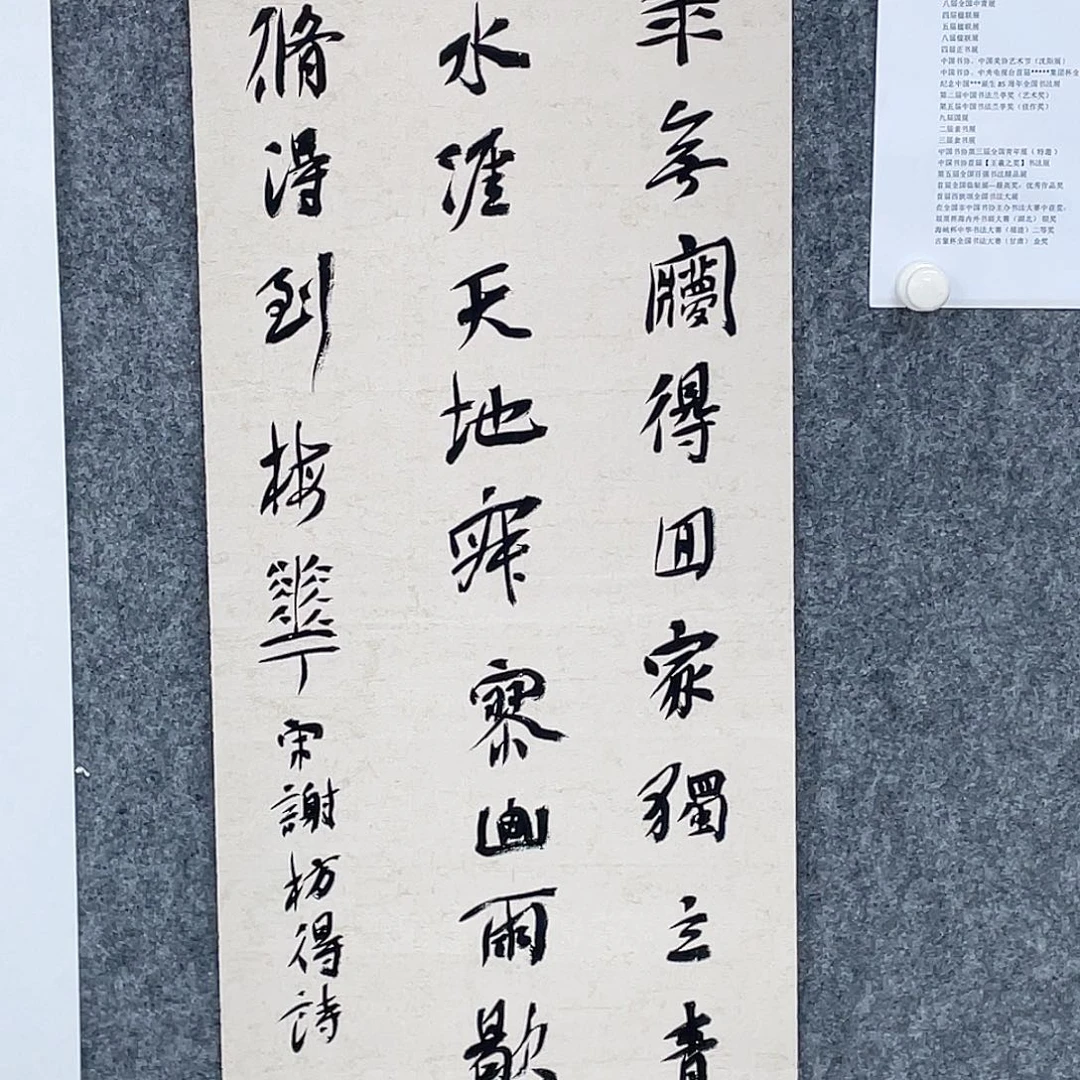 年無寢得回家獨立青
水涯天地寂寥山雨歇
脩得到梅華
宋謝枋得詩
八届全国中青展
四届楹联展
五届楹联展
八届楹联展
四届正书展
中国书协、中国美协艺术节（沈阳展）
中国书协、中央电视台首届*****集团杯全
纪念中国***诞生85周年全国书法展
第二届中国书法兰亭奖（艺术奖）
第五届中国书法兰亭奖（佳作奖）
九届国展
二届青书展
三届青书展
中国书协第三届全国青年展（特邀）
中国书协首届【王羲之奖】书法展
第五届全国百强书法精品展
首届全国临帖展—最高奖：优秀作品奖
海峡杯中华书法大赛（福建）二等奖
杯全国书法大赛（甘肃）金奖